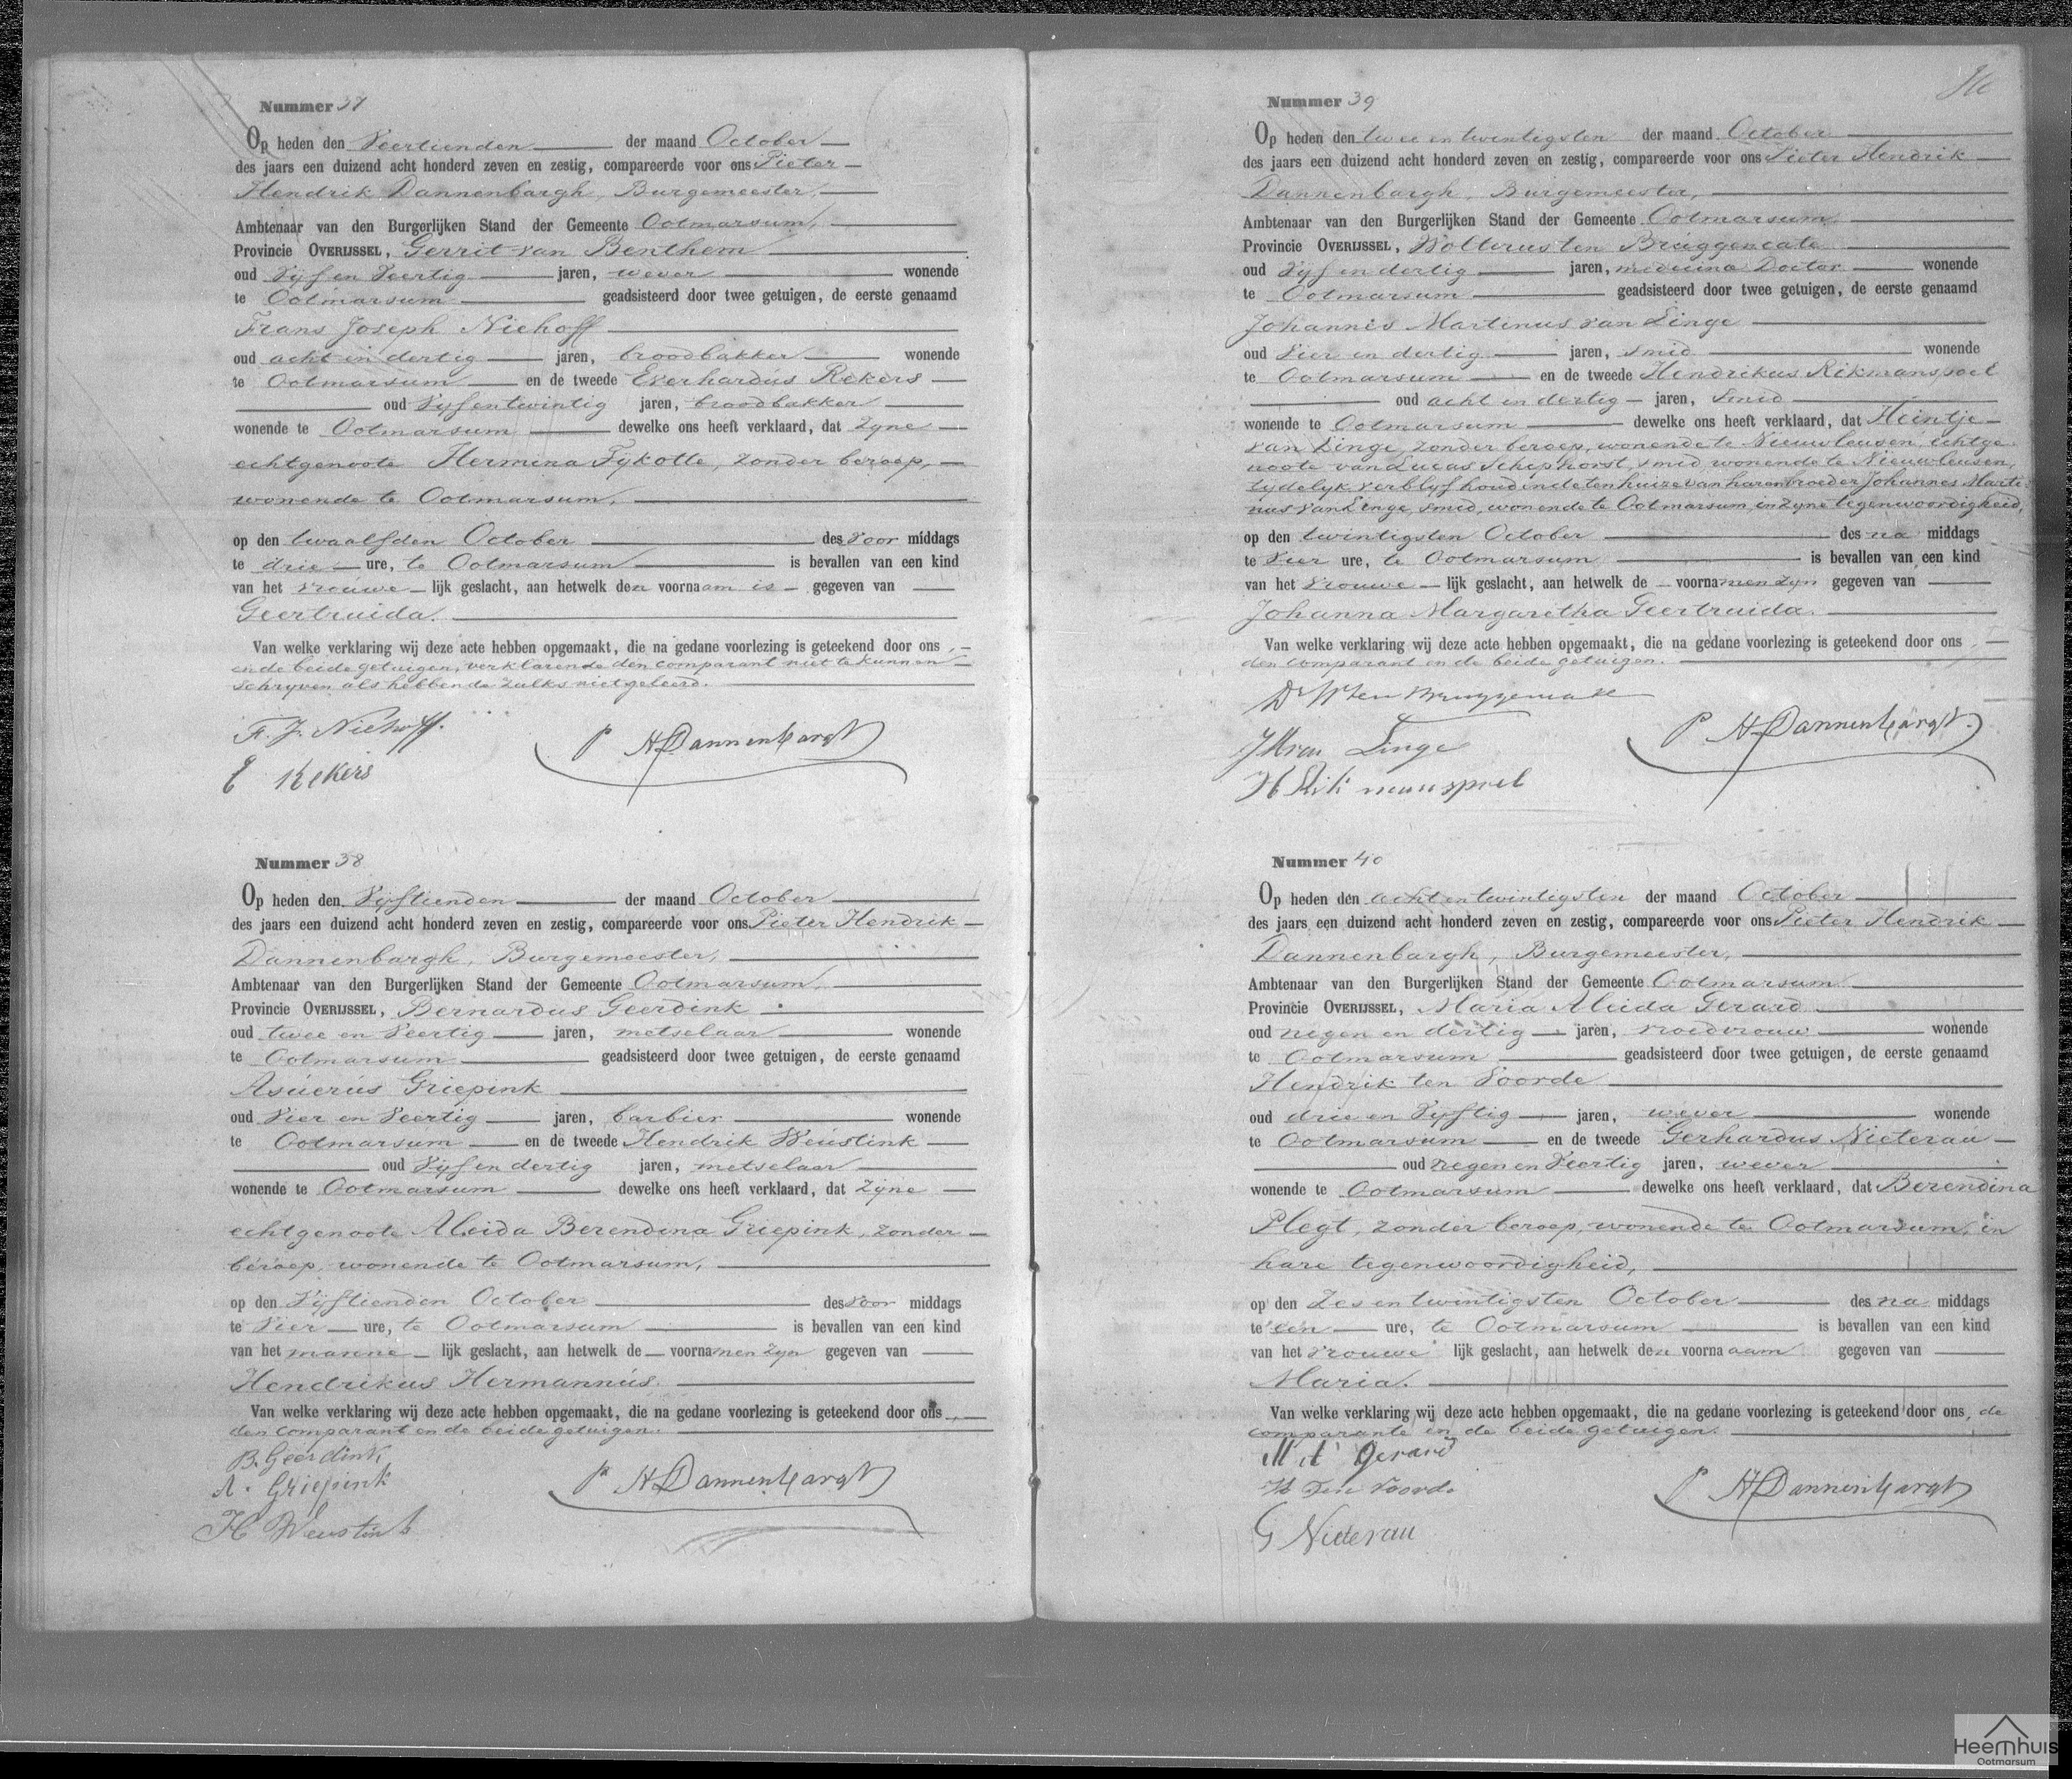 Nummer 37
Op heden den Veertienden der maand October
des jaars een duizend acht honderd zeven en zestig, compareerde voor ons Pieter
Hendrik Dannenbargh, Burgemeester,
Ambtenaar van den Burgerlijken Stand der Gemeente Ootmarsum,
Provincie OVERIJSSEL, Gerrit van Benthem
oud Vijf en Veertig jaren, wever wonende
te Ootmarsum geadsisteerd door twee getuigen, de eerste genaamd
Frans Joseph Niehoff
oud acht en dertig jaren, broodbakker wonende
te Ootmarsum en de tweede Everhardus Rekers
oud Vijfentwintig jaren, broodbakker
wonende te Ootmarsum dewelke ons heeft verklaard, dat zyne
echtgenoote Hermina Tijkotte, zonder beroep,
wonende te Ootmarsum,
op den twaalfden October des voor middags
te drie ure, te Ootmarsum is bevallen van een kind
van het vrouwe lijk geslacht, aan hetwelk den voornaam is gegeven van
Geertruida.
Van welke verklaring wij deze acte hebben opgemaakt, die na gedane voorlezing is geteekend door ons,
en de beide getuigen, verklarende den comparant niet te kunnen
schryven als hebbende zulks niet geleerd.
F. J. Niehoff.
P H Dannenbargh
E Rekers
Nummer 38
Op heden den Vijftienden der maand October
des jaars een duizend acht honderd zeven en zestig, compareerde voor ons Pieter Hendrik
Dannenbargh, Burgemeester,
Ambtenaar van den Burgerlijken Stand der Gemeente Ootmarsum,
Provincie OVERIJSSEL, Bernardus Geerdink
oud twee en Veertig jaren, metselaar wonende
te Ootmarsum geadsisteerd door twee getuigen, de eerste genaamd
Asuerus Griepink
oud Vier en Veertig jaren, barbier wonende
te Ootmarsum en de tweede Hendrik Weustink
oud Vijf en dertig jaren, metselaar
wonende te Ootmarsum dewelke ons heeft verklaard, dat zyne
echtgenoote Aleida Berendina Griepink, zonder
beroep, wonende te Ootmarsum,
op den Vijftienden October des voor middags
te Vier ure, te Ootmarsum is bevallen van een kind
van het manne lijk geslacht, aan hetwelk de voornamen zyn gegeven van
Hendrikus Hermannus.
Van welke verklaring wij deze acte hebben opgemaakt, die na gedane voorlezing is geteekend door ons,
den comparant en de beide getuigen.
B. Geerdink
A. Griepink
P H Dannenbargh
H Weustink
Nummer 39
Op heden den twee en twintigsten der maand October
des jaars een duizend acht honderd zeven en zestig, compareerde voor ons Pieter Hendrik
Dannenbargh, Burgemeester,
Ambtenaar van den Burgerlijken Stand der Gemeente Ootmarsum,
Provincie OVERIJSSEL, Wolterus ten Bruggencate
oud Vijf en dertig jaren, medicina Doctor wonende
te Ootmarsum geadsisteerd door twee getuigen, de eerste genaamd
Johannes Martinus van Linge
oud Vier en dertig jaren, smid wonende
te Ootmarsum en de tweede Hendrikus Rikmanspoel
oud acht en dertig jaren, smid
wonende te Ootmarsum dewelke ons heeft verklaard, dat Heintje
van Linge, zonder beroep, wonende te Nieuwleusen, echtge
noote van Lucas Schiphorst, smid, wonende te Nieuwleusen,
tydelyk verblyf houdende ten huize van haren broeder Johannes Marti
nus van Linge, smid, wonende te Ootmarsum, in zyne tegenwoordigheid,
op den twintigsten October des na middags
te Vier ure, te Ootmarsum is bevallen van een kind
van het vrouwe lijk geslacht, aan hetwelk de voornamen zyn gegeven van
Johanna Margaretha Geertruida.
Van welke verklaring wij deze acte hebben opgemaakt, die na gedane voorlezing is geteekend door ons,
den comparant en de beide getuigen.
Dr W ten Bruggencate
P H Dannenbargh.
J M van Linge
H Rikmanspoel
Nummer 40
Op heden den acht en twintigsten der maand October
des jaars een duizend acht honderd zeven en zestig, compareerde voor ons Pieter Hendrik
Dannenbargh, Burgemeester,
Ambtenaar van den Burgerlijken Stand der Gemeente Ootmarsum
Provincie OVERIJSSEL, Maria Aleida Gerard
oud negen en dertig jaren, vroedvrouw wonende
te Ootmarsum geadsisteerd door twee getuigen, de eerste genaamd
Hendrik ten Voorde
oud drie en Vijftig jaren, wever wonende
te Ootmarsum en de tweede Gerhardus Nieterau
oud negen en Veertig jaren, wever
wonende te Ootmarsum dewelke ons heeft verklaard, dat Berendina
Plegt, zonder beroep, wonende te Ootmarsum, in
hare tegenwoordigheid,
op den Zes en twintigsten October des na middags
te een ure, te Ootmarsum is bevallen van een kind
van het vrouwe lijk geslacht, aan hetwelk den voornaam gegeven van
Maria.
Van welke verklaring wij deze acte hebben opgemaakt, die na gedane voorlezing is geteekend door ons, de
comparante en de beide getuigen.
M A Gerard
H Ten Voorde
P H Dannenbargh
G Niederau
Heemhuis
Ootmarsum